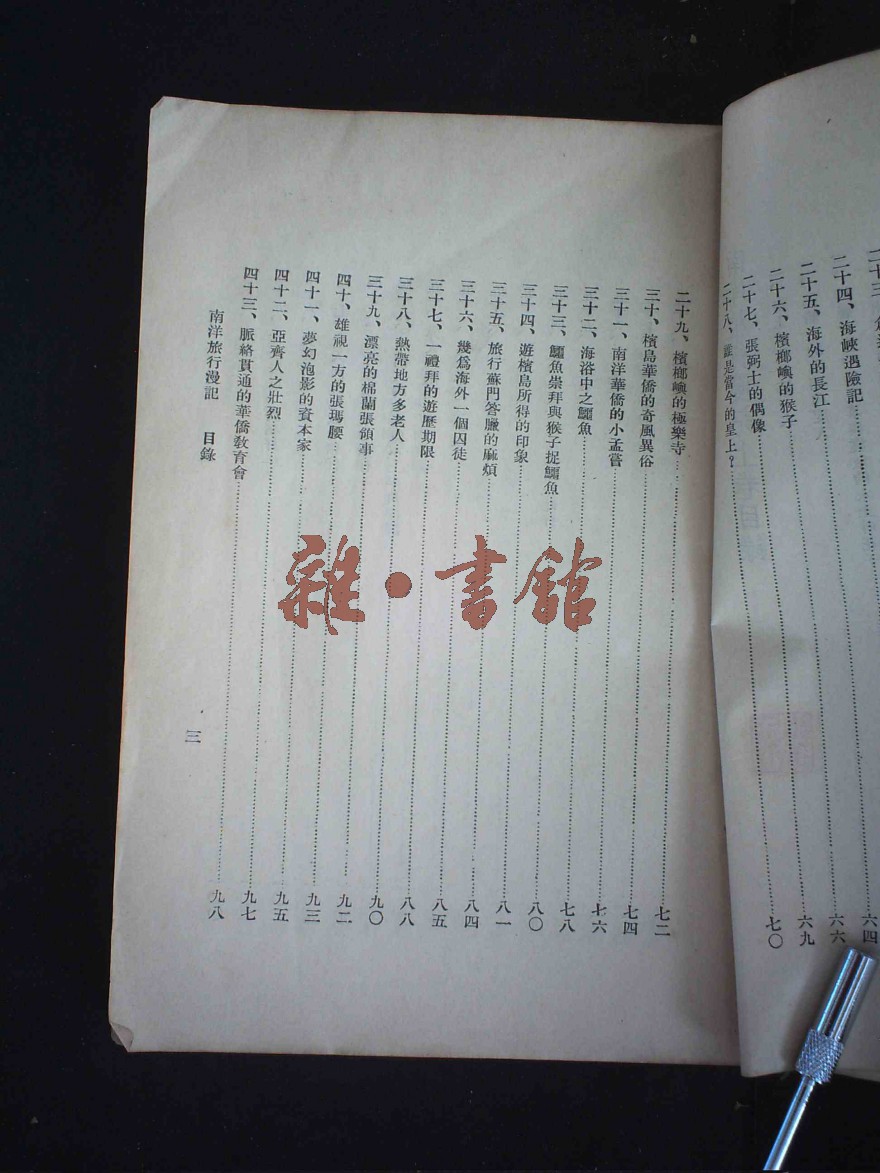 二十四、海峽遇險記……六四
二十五、海外的長江……六六
二十六、檳榔嶼的猴子……六九
二十七、張弼士的偶像……七〇
二十八、誰是當今的皇上？
二十九、檳榔嶼的極樂寺……七二
三十、檳島華僑的奇風異俗……七四
三十一、南洋華僑的小孟嘗……七六
三十二、海浴中之鱷魚……七八
三十三、鱷魚崇拜與猴子捉鱷魚……八〇
三十四、遊檳島所得的印象……八一
三十五、旅行蘇門答臘的麻煩……八四
三十六、幾爲海外一個囚徒……八五
三十七、一禮拜的遊歷期限……八八
三十八、熱帶地方多老人……九〇
三十九、漂亮的棉蘭張領事……九二
四十、雄視一方的張瑪腰……九三
四十一、夢幻泡影的資本家……九五
四十二、亞齊人之壯烈……九七
四十三、脈絡貫通的華僑教育會……九八
南洋旅行漫記　目錄
三
雜·書館